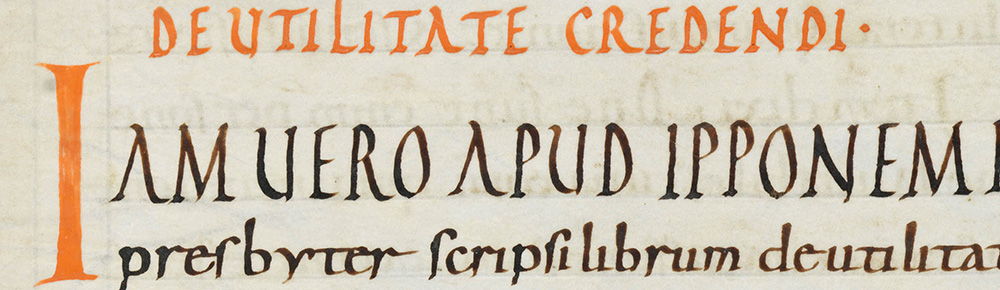 DE UTILITATE CREDENDI·
IAM UERO APUD IPPONEM
presbyter scripsi librum de utilitat